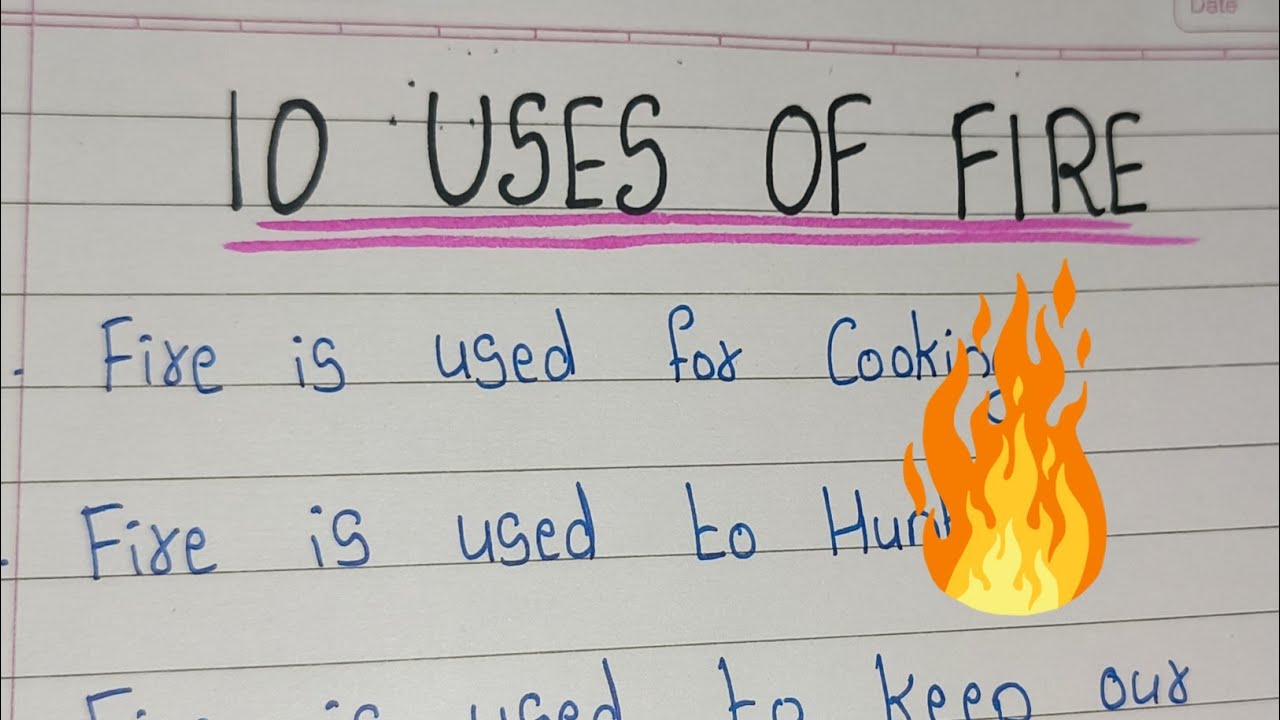 Date
10 USES OF FIRE
Fire is used for Cooking
Fire is used to Hunt
Fire is used to keep our